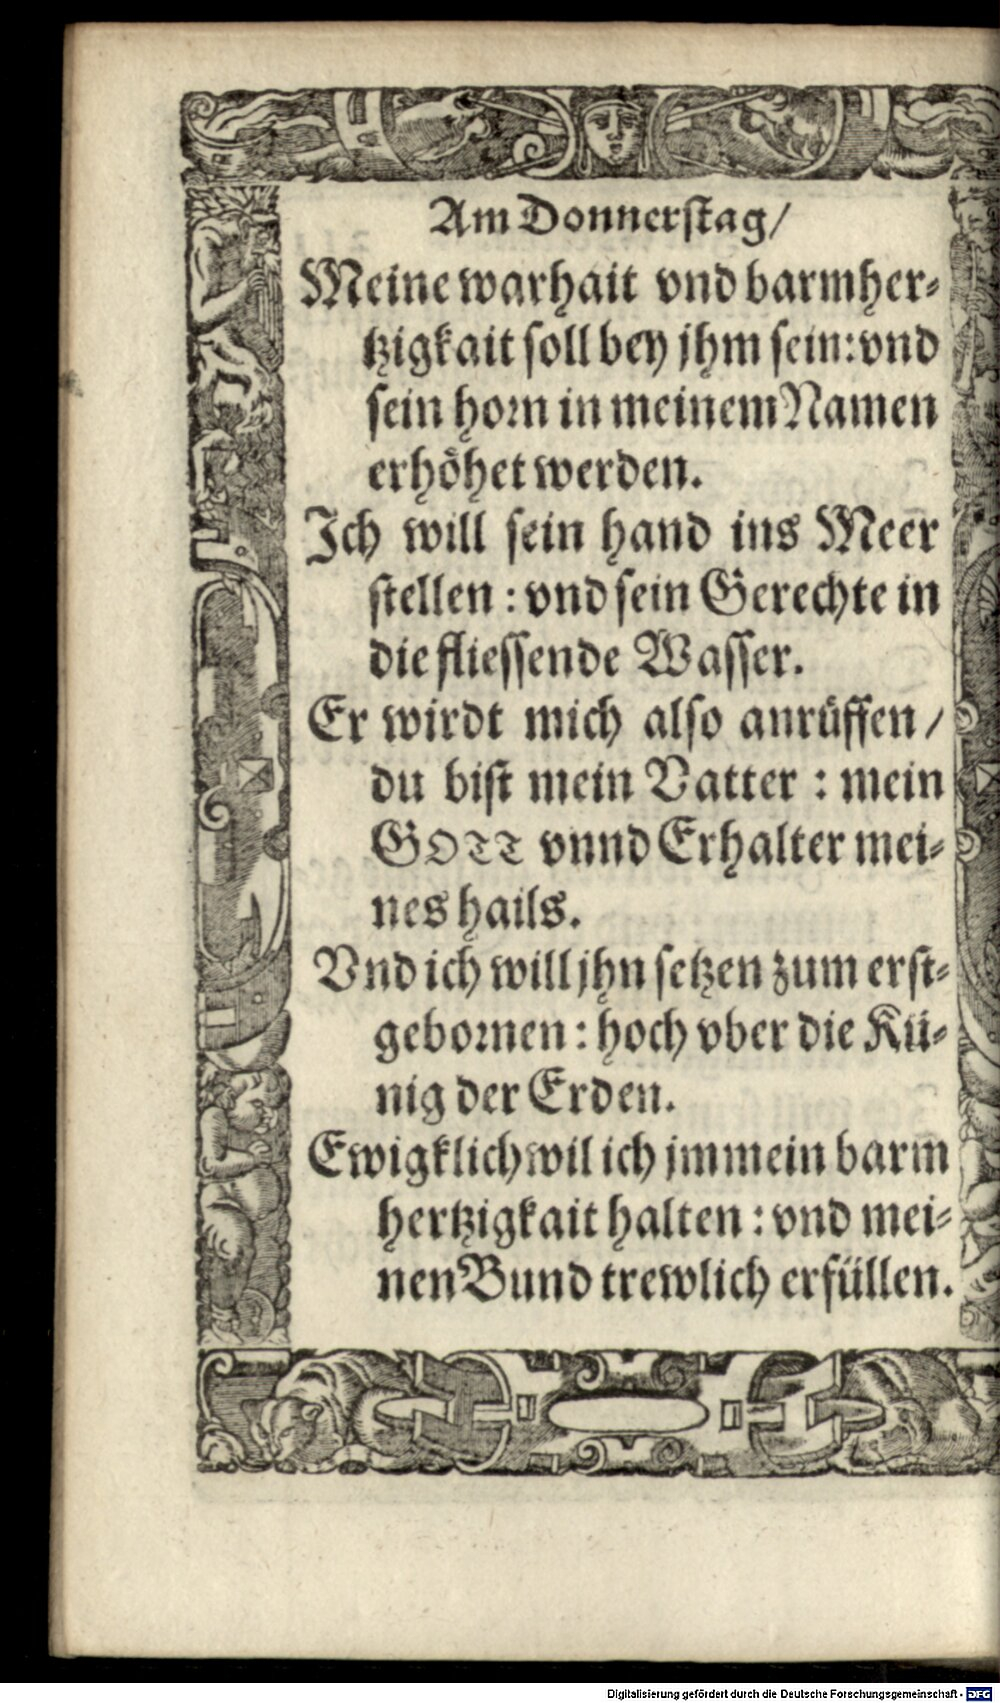 Am Donnerstag/
Meine warhait vnd barmher-
tzigkait soll bey jhm sein: vnd
sein horn in meinem Namen
erhöhet werden.
Ich will sein hand ins Meer
stellen: vnd sein Gerechte in
die fliessende Wasser.
Er wirdt mich also anrüffen/
du bist mein Vatter: mein
GOTT vnnd Erhalter mei-
nes hails.
Vnd ich will jhn setzen zum erst-
gebornen: hoch vber die Kü-
nig der Erden.
Ewigklich wil ich jm mein barm
hertzigkait halten: vnd mei-
nen Bund trewlich erfüllen.
Digitalisierung gefördert durch die Deutsche Forschungsgemeinschaft - DFG